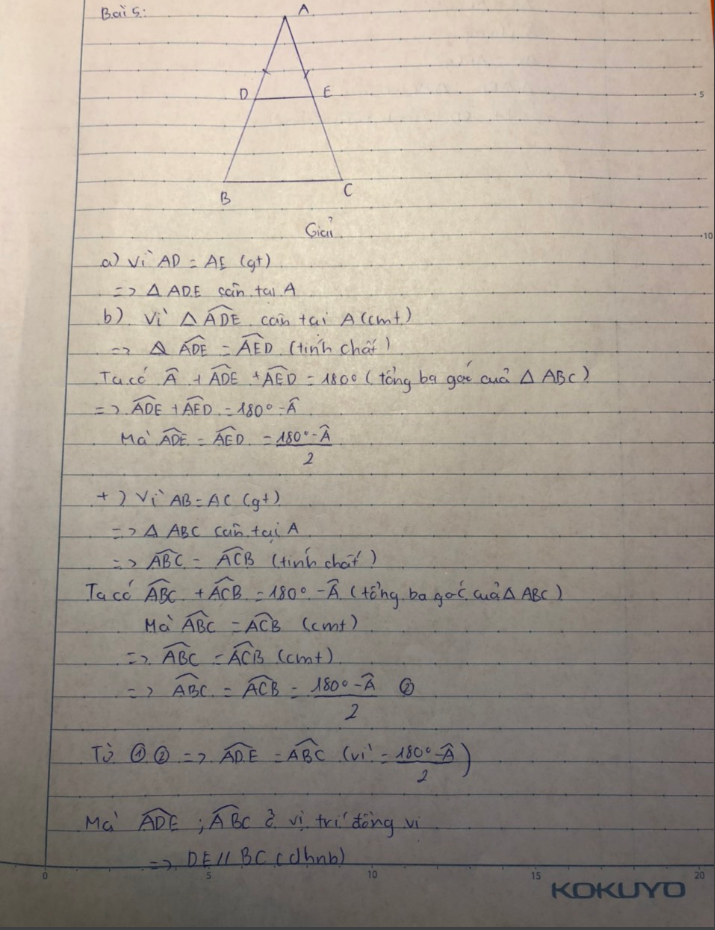 Bài 5:
A
D
E
B
C
Giải
a) Vì AD = AE (gt)
=> Δ ADE cân tại A
b) Vì Δ ADE cân tại A (cmt)
=> ADE = AED (tính chất)
Ta có Â + ADE + AED = 180° (tổng ba góc cuả Δ ABC)
=> ADE + AED = 180° - Â
Mà ADE = AED = 180° - Â
2
+) Vì AB = AC (gt)
=> Δ ABC cân tại A
=> ABC = ACB (tính chất)
Ta có ABC + ACB = 180° - Â (tổng ba góc cuả Δ ABC)
Mà ABC = ACB (cmt)
=> ABC = ACB (cmt)
=> ABC = ACB = 180° - Â ②
2
Từ ① ② => ADE = ABC (vì = 180° - Â)
2
Mà ADE ; ABC ở vị trí đồng vị
=> DE // BC (dhnb)
5
10
0 5 10 15 20
KOKUYO